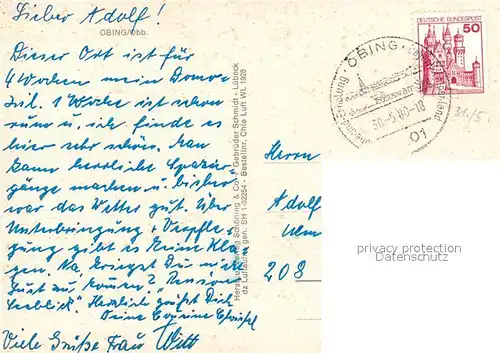 Lieber Adolf!
OBING/Obb.
Dieser Ort ist für
4 Wochen mein Domi-
zil. 1 Woche ist schon
rum u. ich finde es
hier sehr schön. Man
kann herrliche Spazier-
gänge machen u. bisher
war das Wetter gut. Über
Unterbringung & Verpfle-
gung gibt es keine Kla-
gen. Na, kriegst Du nicht
Lust zu kommen? "Pension
Seeblick". Herzlich grüßt Dich
Deine Cousine
Viele Grüße Frau Witt
Herst. Verlag Schöning & Co + Gebrüder Schmidt - Lübeck
Luftaufn. gen. SH 1-32254 - Bestellnr. Chie Luft WL 1928
DEUTSCHE BUNDESPOST
50
OBING
30.-5.80-18
01
31/5.
Herrn
Adolf
Ulm
208
privacy protection